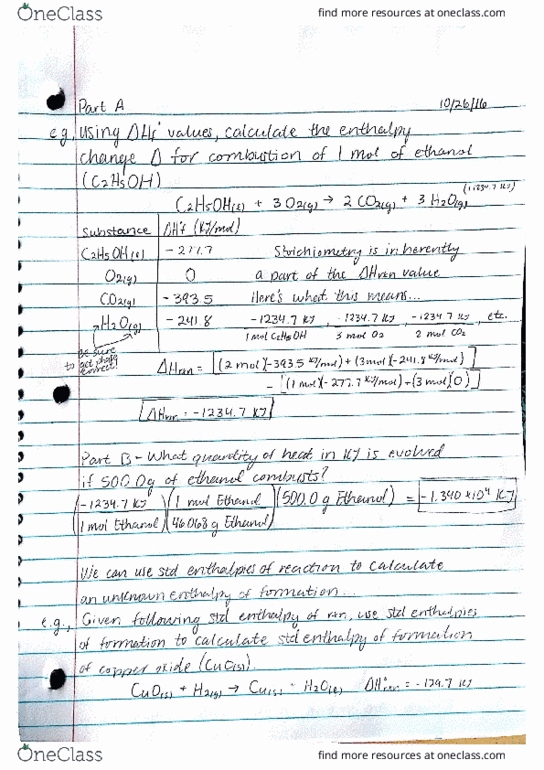 OneClass
find more resources at oneclass.com
Part A 10/26/16
e.g. Using ΔHf° values, calculate the enthalpy
change Δ for combustion of 1 mol of ethanol
(C2H5OH)
(1,234.7 KJ)
C2H5OH(l) + 3 O2(g) → 2 CO2(g) + 3 H2O(g)
Substance ΔH°f (KJ/mol)
C2H5OH(l) -277.7 Stoichiometry is inherently
O2(g) 0 a part of the ΔHrxn value
CO2(g) -393.5 Here's what this means...
H2O(g) -241.8 -1234.7 KJ / 1 mol C2H5OH , -1234.7 KJ / 3 mol O2 , -1234.7 KJ / 2 mol CO2 , etc.
Be sure
to get
correct!
ΔHrxn = [(2 mol)(-393.5 KJ/mol) + (3 mol)(-241.8 KJ/mol)]
- [(1 mol)(-277.7 KJ/mol) + (3 mol)(0)]
ΔHrxn = -1234.7 KJ
Part B - What quantity of heat in KJ is evolved
if 500.0g of ethanol combusts?
(-1234.7 KJ / 1 mol Ethanol)(1 mol Ethanol / 46.068 g Ethanol)(500.0 g Ethanol) = -1.340 x10⁴ KJ
We can use std enthalpies of reaction to calculate
an unknown enthalpy of formation...
e.g., Given following std enthalpy of rxn, use std enthalpies
of formation to calculate std enthalpy of formation
of copper oxide (CuO(s)).
CuO(s) + H2(g) → Cu(s) + H2O(l) ΔH°rxn = -129.7 KJ
OneClass
find more resources at oneclass.com